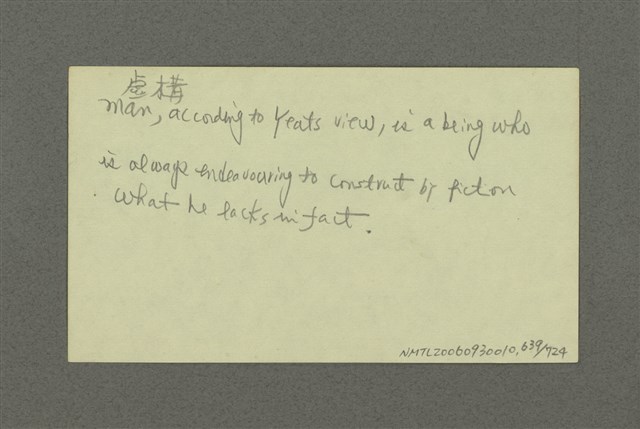 虛構
Man, according to Yeats view, is a being who
is always endeavouring to construct by fiction
what he lacks in fact.
NMTL20060930010, 639/724